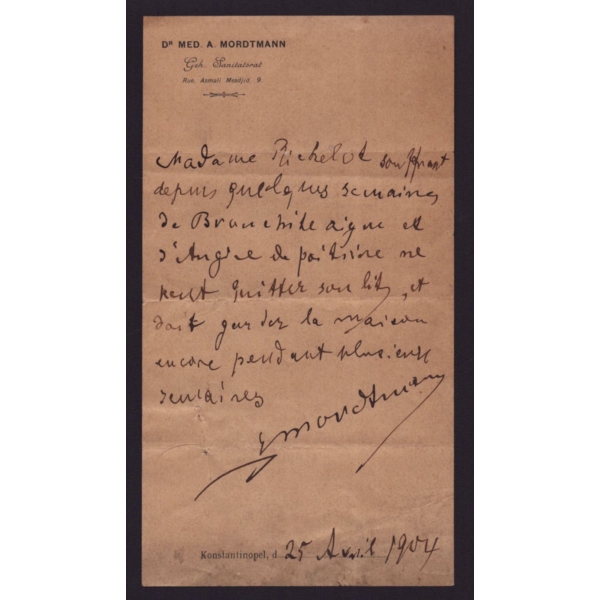 Dr MED. A. MORDTMANN
Geh. Sanitätsrat
Rue. Asmali Mesdjid. 9.
Madame Richelot souffrant
depuis quelques semaines
de Bronchite aigue et
d'Angine de poitrine ne
peut quitter son lit, et
doit garder la maison
encore pendant plusieurs
semaines
Mordtmann
Konstantinopel, d. 25 Avril 1904